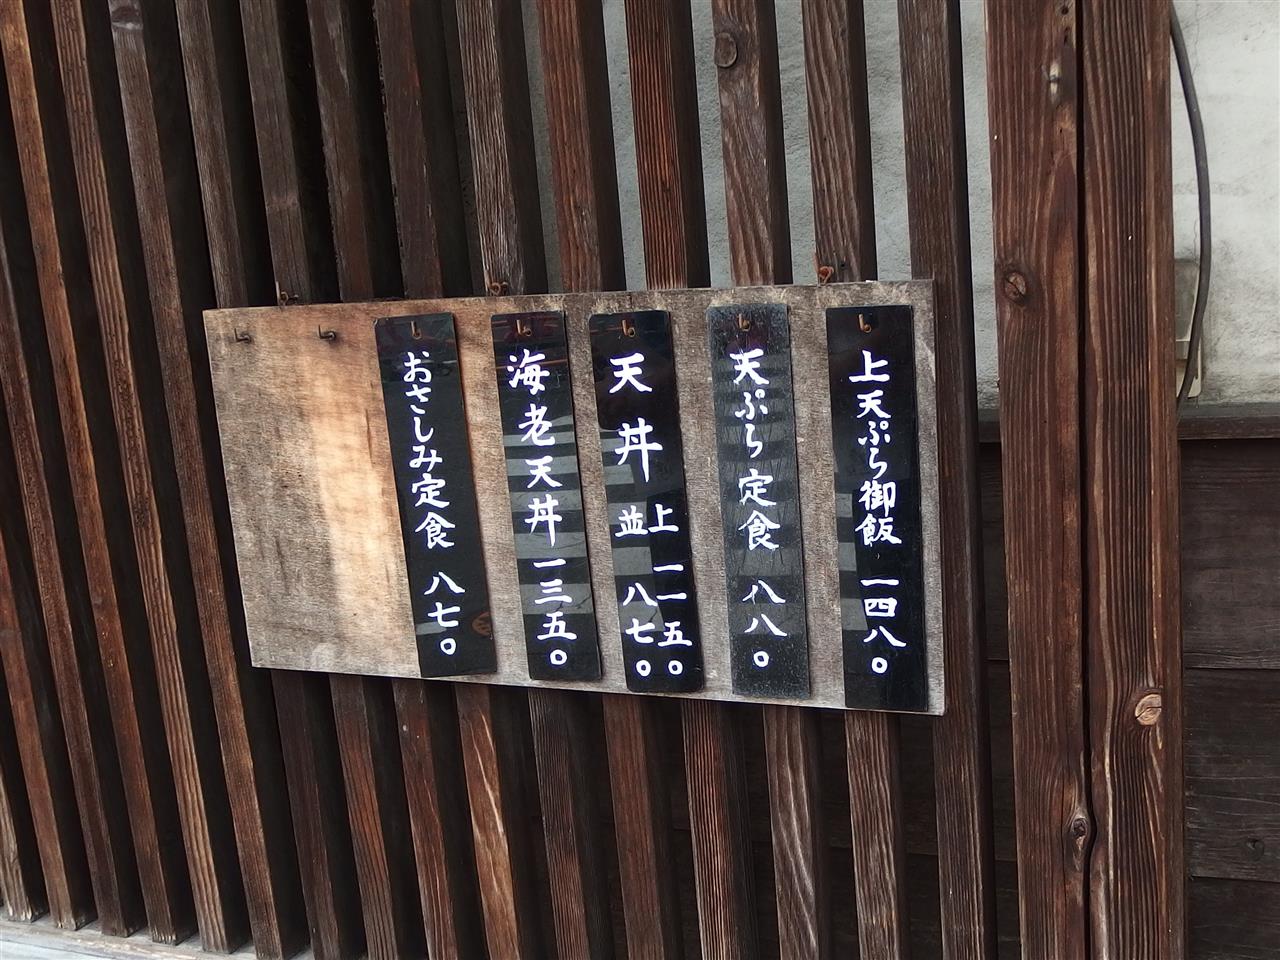 上天ぷら御飯 一四八〇
天ぷら定食 八八〇
天丼 上 一一五〇
並 八七〇
海老天丼 一三五〇
おさしみ定食 八七〇